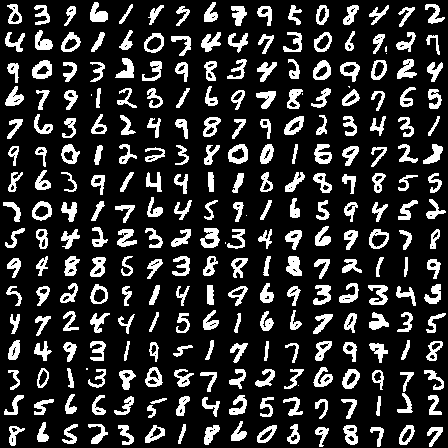 8 3 9 6 1 4 9 6 7 9 5 0 8 4 7 2
4 6 0 1 6 0 7 4 4 7 3 0 6 9 2 7
9 0 7 3 2 3 9 8 3 4 2 0 9 0 2 4
6 7 9 1 2 3 1 6 9 7 8 3 0 7 6 5
7 6 3 6 2 4 9 8 7 9 0 2 3 4 3 1
9 9 0 1 2 2 3 8 0 0 1 5 9 7 2 2
8 6 3 9 1 4 4 1 1 8 8 8 7 8 5 5
7 0 4 1 7 6 4 5 9 1 6 5 9 4 5 2
5 8 4 2 2 3 2 3 3 4 9 6 9 0 7 8
9 4 8 8 5 9 3 8 8 1 8 7 2 1 1 9
5 9 2 0 9 1 4 1 9 6 9 3 2 3 4 5
4 7 2 4 4 1 5 6 1 6 6 7 0 2 3 5
0 4 9 3 1 9 5 1 7 1 7 8 9 7 1 8
3 0 1 3 8 0 8 7 2 2 3 6 0 9 7 3
5 5 6 6 3 5 8 4 2 5 2 7 7 1 2 2
8 6 5 2 3 0 1 8 6 0 3 9 8 7 0 7